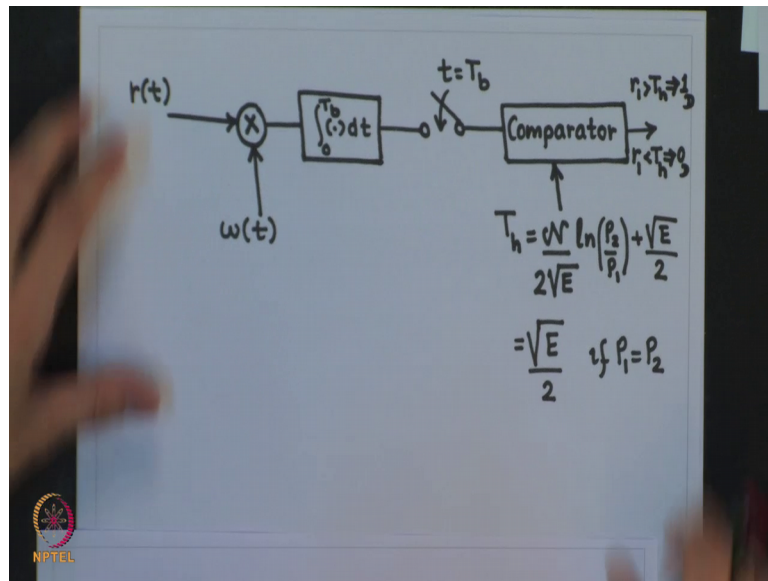 r(t)
t=T_b
∫_0^{T_b}(·)dt
Comparator
r_1>T_h⇒1_D
r_1<T_h⇒0_D
ω(t)
T_h = 𝒩/(2√E) ln(P_2/P_1) + √E/2
= √E/2 if P_1=P_2
NPTEL